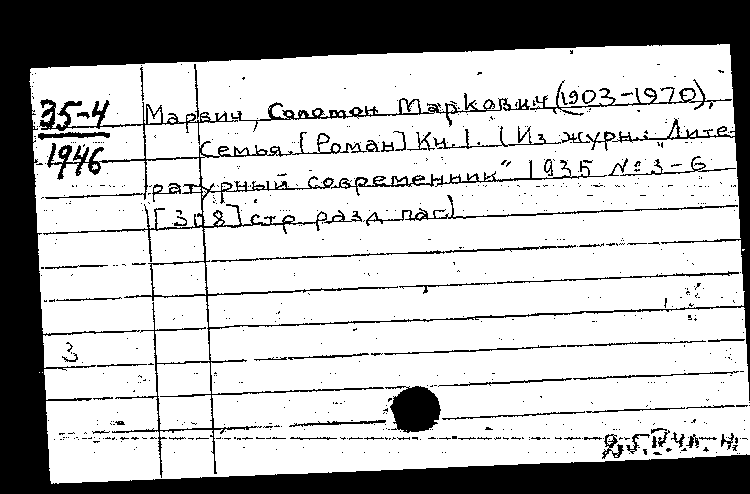 35-4
1946
Марвич, Соломон Маркович (1903-1970).
Семья. [Роман] Кн. 1. (Из журн.: "Лите-
ратурный современник" 1935 № 3-6
[308] стр. разд. паг.)
3